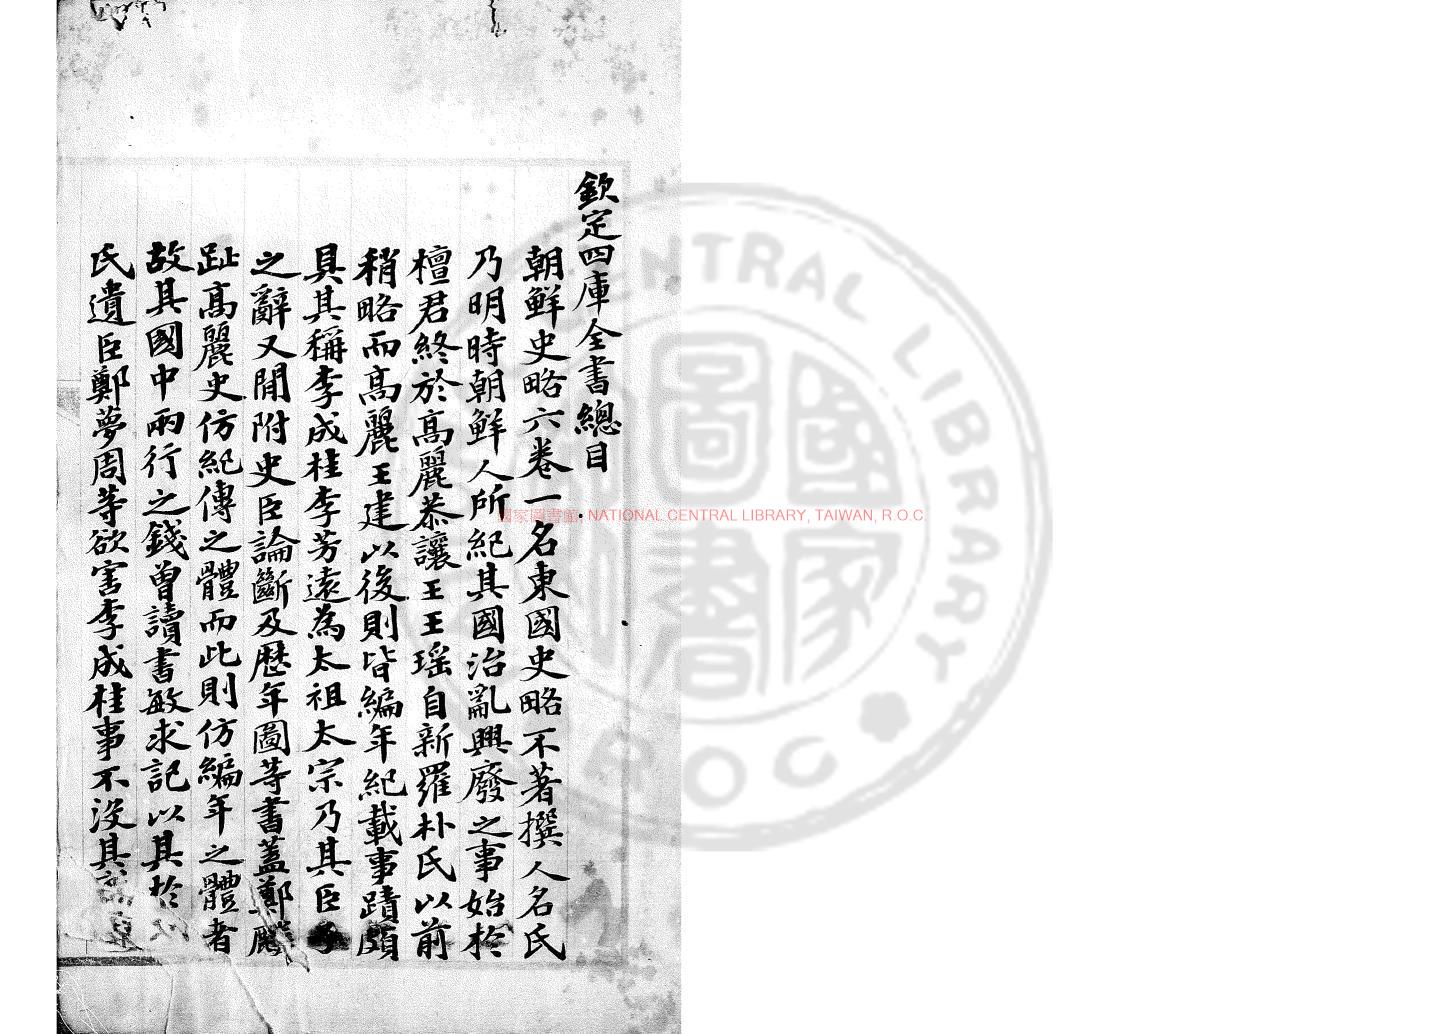 欽定四庫全書總目
朝鮮史略六卷一名東國史略不著撰人名氏
乃明時朝鮮人所紀其國治亂興廢之事始於
檀君終於高麗恭讓王王瑤自新羅朴氏以前
稍略而高麗王建以後則皆編年紀載事蹟頗
具其稱李成桂李芳遠為太祖太宗乃其臣子
之辭又間附史臣論斷及歷年圖等書蓋鄭麟
趾高麗史仿紀傳之體而此則仿編年之體者
故其國中兩行之錢曾讀書敏求記以其於
氏遺臣鄭夢周等欲害李成桂事不沒其
國家圖書館, NATIONAL CENTRAL LIBRARY, TAIWAN, R.O.C.
CENTRAL LIBRARY
R O C
國家圖書